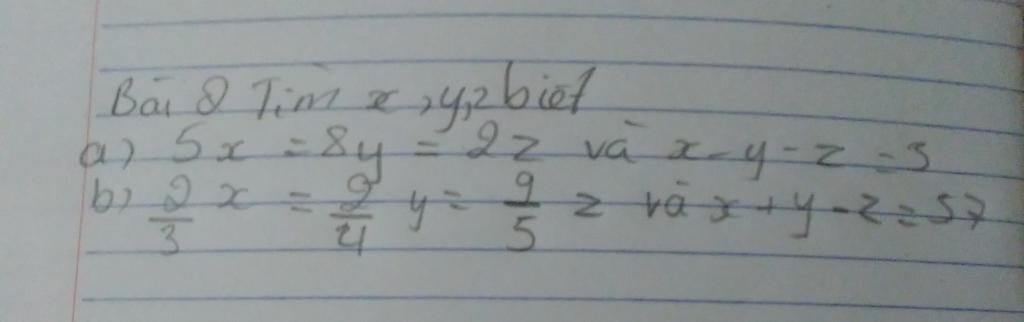 Bài 2 Tìm x, y, z biết
a) 5x = 8y = 2z và x - y - z = 3
b) 2/3 x = 2/4 y = 9/5 z và x + y - z = 57